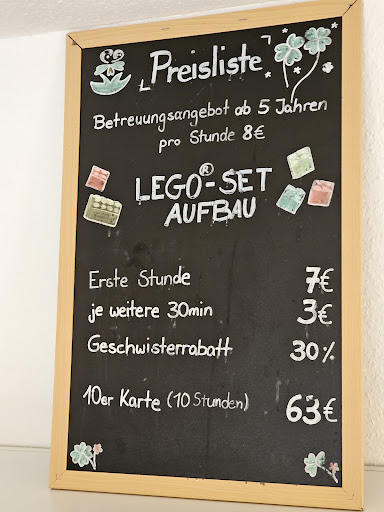 „Preisliste"
Betreuungsangebot ab 5 Jahren
pro Stunde 8€
LEGO®-SET
AUFBAU
Erste Stunde 7€
je weitere 30min 3€
Geschwisterrabatt 30%
10er Karte (10 Stunden) 63€